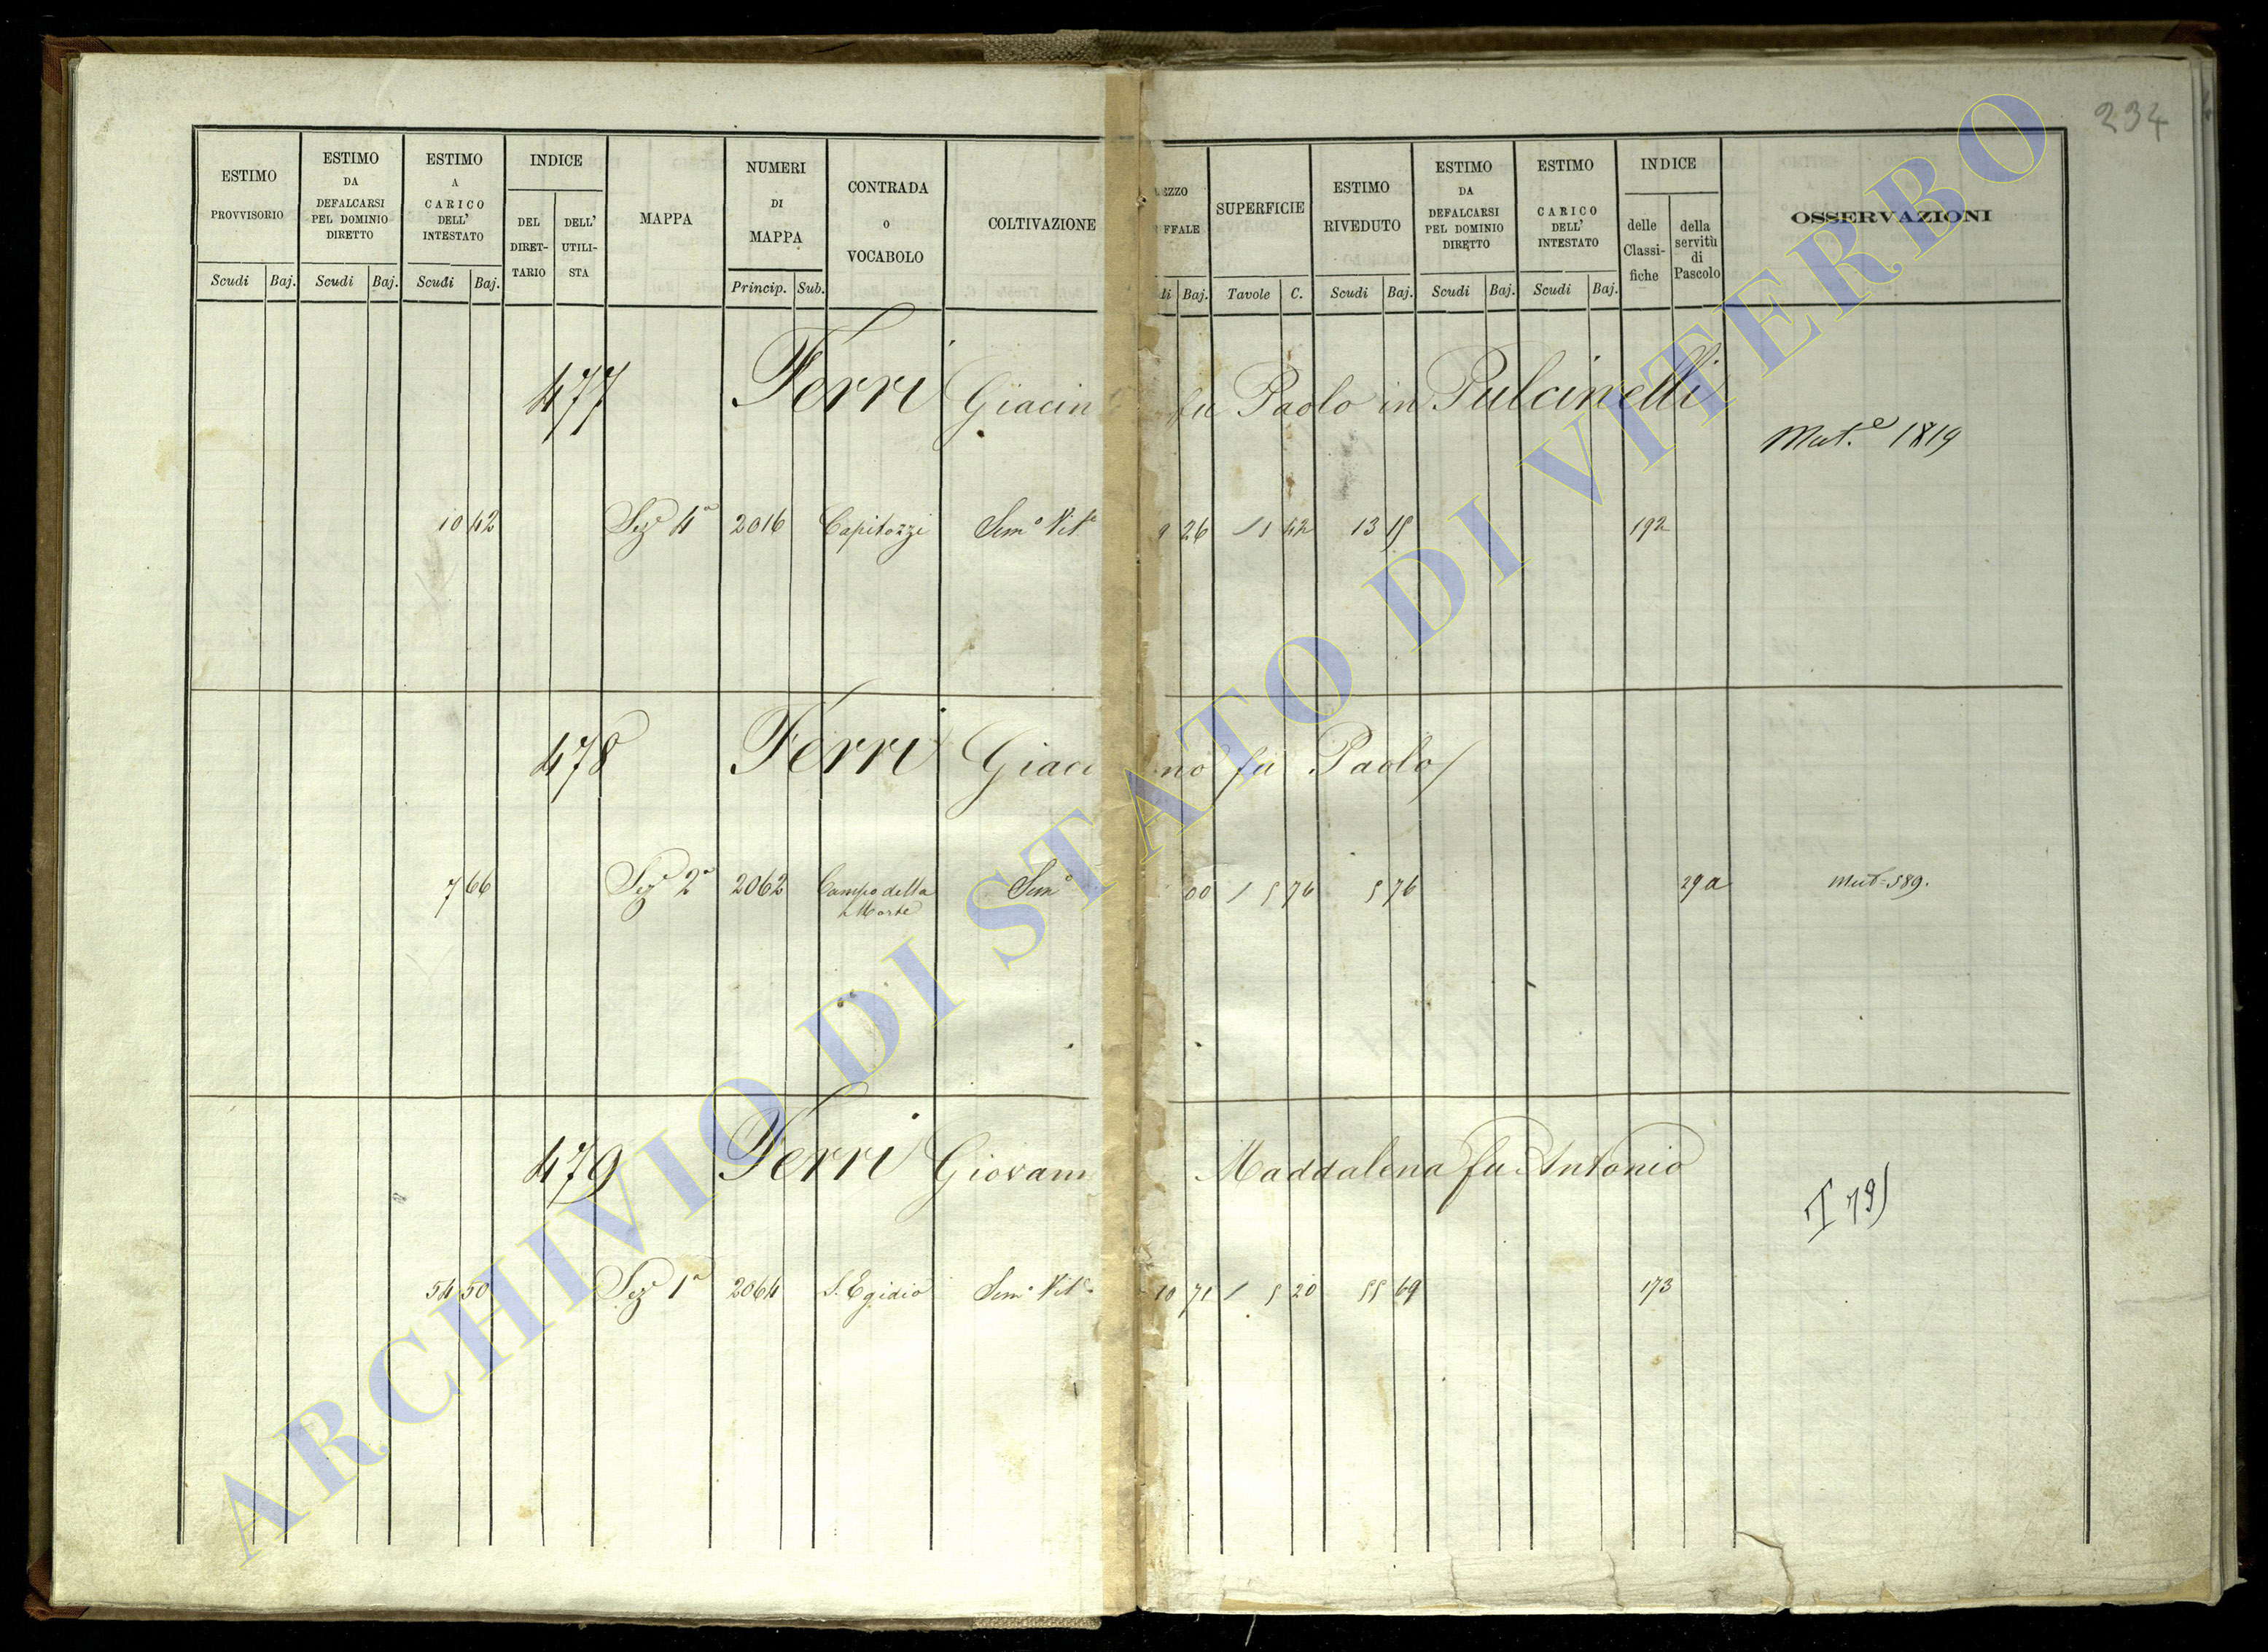 234
ESTIMO PROVVISORIO
Scudi Baj.
ESTIMO DA DEFALCARSI PEL DOMINIO DIRETTO
Scudi Baj.
ESTIMO A CARICO DELL' INTESTATO
Scudi Baj.
INDICE
DEL DIRET-TARIO
DELL' UTILI-STA
MAPPA
NUMERI DI MAPPA
Princip. Sub.
CONTRADA o VOCABOLO
COLTIVAZIONE
EZZO
FFALE
di Baj.
SUPERFICIE
Tavole C.
ESTIMO RIVEDUTO
Scudi Baj.
ESTIMO DA DEFALCARSI PEL DOMINIO DIRETTO
Scudi Baj.
ESTIMO CARICO DELL' INTESTATO
Scudi Baj.
INDICE
delle Classi-fiche
della servitù di Pascolo
OSSERVAZIONI
477 Ferri Giacin fu Paolo in Pulcinelli
Mut.e 1819
10 42 Sez.e 4a 2016 Capitozzi Sem.o Vit.o 9 26 42 13 15 192
478 Ferri Giaci no fu Paolo
7 66 Sez.e 2a 2062 Campo della Morte Sem.o 00 5 76 5 76 29 a Mut. 589.
479 Ferri Giovan Maddalena fu Antonio
T 79)
54 50 Sez.e 1a 2064 S. Egidio Sem.o Vit.o 10 71 5 20 55 69 173
ARCHIVIO DI STATO DI VITERBO